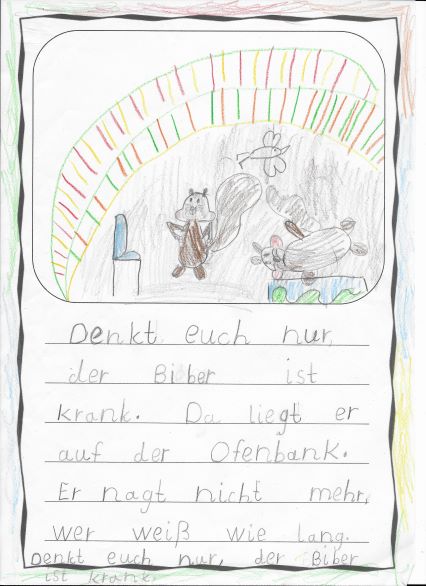 Denkt euch nur,
der Biber ist
krank. Da liegt er
auf der Ofenbank.
Er nagt nicht mehr,
wer weiß wie lang.
Denkt euch nur, der Biber
ist krank.